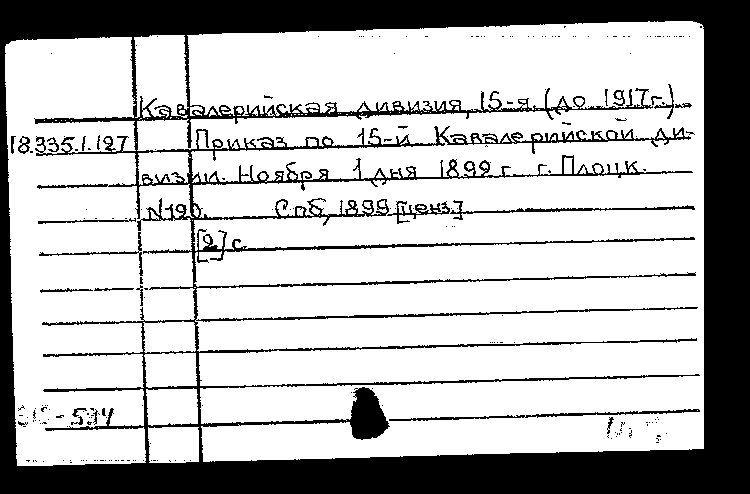 Кавалерийская дивизия, 15-я. (до 1917г.)
18.335.1.127 Приказ по 15-й Кавалерийской ди-
визии. Ноября 1 дня 1899 г. г. Плоцк.
N190. Спб, 1899 [ценз.]
[2] с.
534